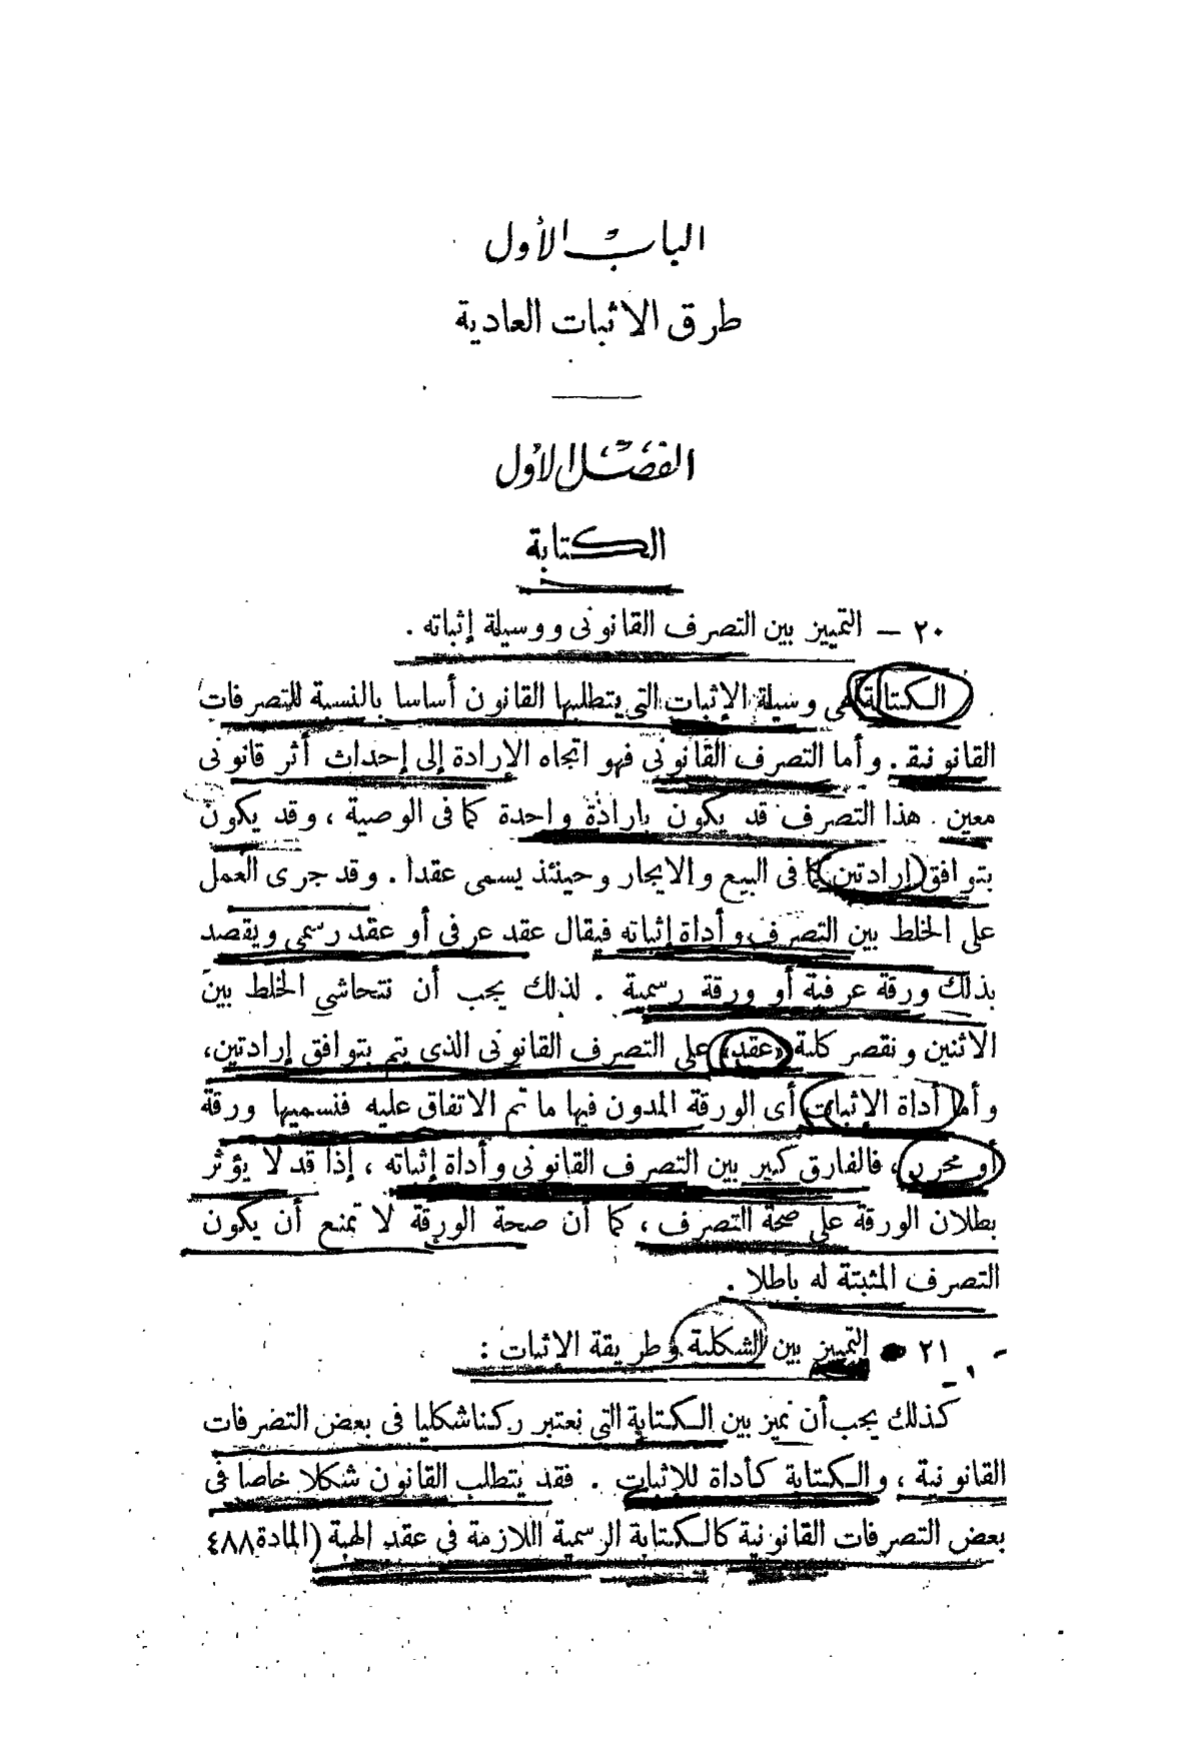 الباب الأول
طرق الاثبات العادية
الفصل الأول
الكتابة
٢٠ — التمييز بين التصرف القانونى ووسيلة إثباته .
الكتابة هى وسيلة الإثبات التى يتطلبها القانون أساسا بالنسبة للتصرفات
القانونية . وأما التصرف القانونى فهو اتجاه الإرادة إلى إحداث أثر قانونى
معين . هذا التصرف قد يكون بارادة واحدة كما فى الوصية ، وقد يكون
بتوافق إرادتين كما فى البيع والايجار وحينئذ يسمى عقدا . وقد جرى العمل
على الخلط بين التصرف وأداة إثباته فيقال عقد عرفى أو عقد رسمى ويقصد
بذلك ورقة عرفية أو ورقة رسمية . لذلك يجب أن نتحاشى الخلط بين
الاثنين ونقصر كلمة «عقد» على التصرف القانونى الذى يتم بتوافق إرادتين،
وأما أداة الإثبات أى الورقة المدون فيها ما تم الاتفاق عليه فنسميها ورقة
أو محرر ، فالفارق كبير بين التصرف القانونى وأداة إثباته ، إذا قد لا يؤثر
بطلان الورقة على صحة التصرف ، كما أن صحة الورقة لا تمنع أن يكون
التصرف المثبتة له باطلا .
٢١ — التمييز بين الشكلية وطريقة الإثبات :
كذلك يجب أن نميز بين الكتابة التى تعتبر ركنا شكليا فى بعض التصرفات
القانونية ، والكتابة كأداة للاثبات . فقد يتطلب القانون شكلا خاصا فى
بعض التصرفات القانونية كالكتابة الرسمية اللازمة فى عقد الهبة (المادة ٤٨٨